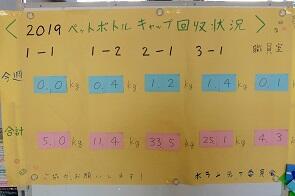 〈 2019 ペットボトルキャップ回収状況 〉
1-1 1-2 2-1 3-1 職員室
今週 0.0 kg 0.4 kg 1.2 kg 1.4 kg 0.1 kg
合計 5.0 kg 11.4 kg 33.5 kg 25.1 kg 4.3 kg
ご協力お願いします! ボランティア委員会